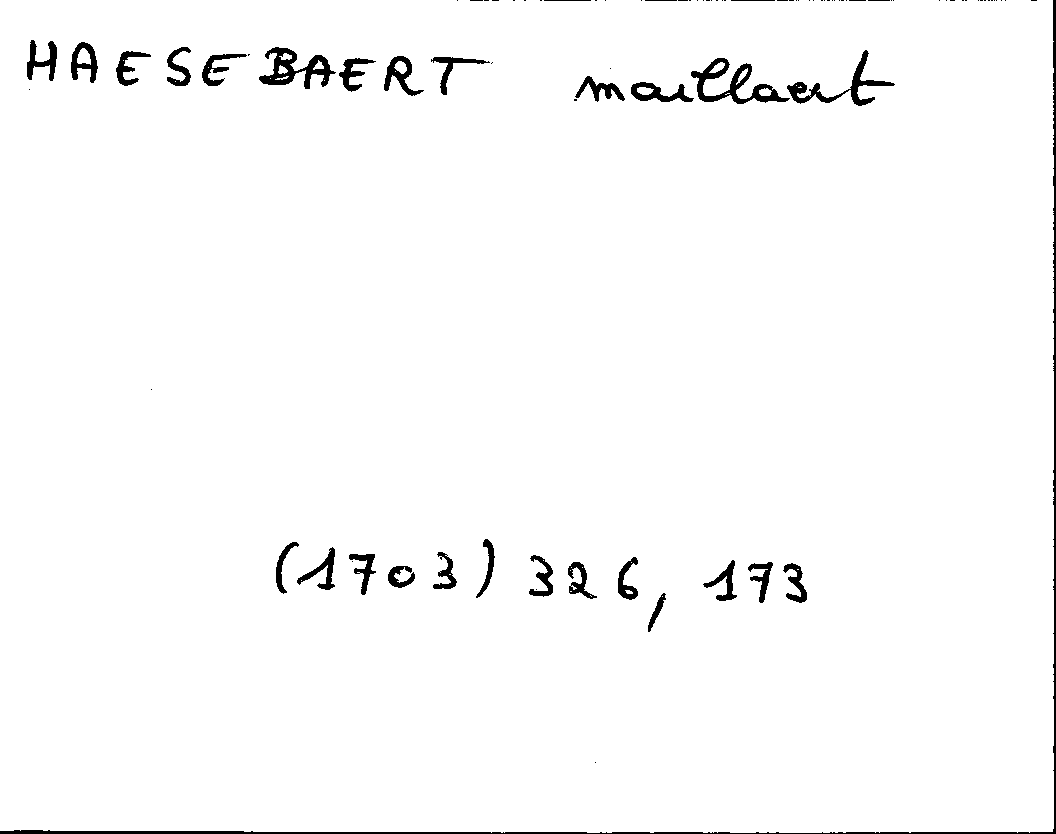 HAESEBAERT maillaert
(1703) 326, 173